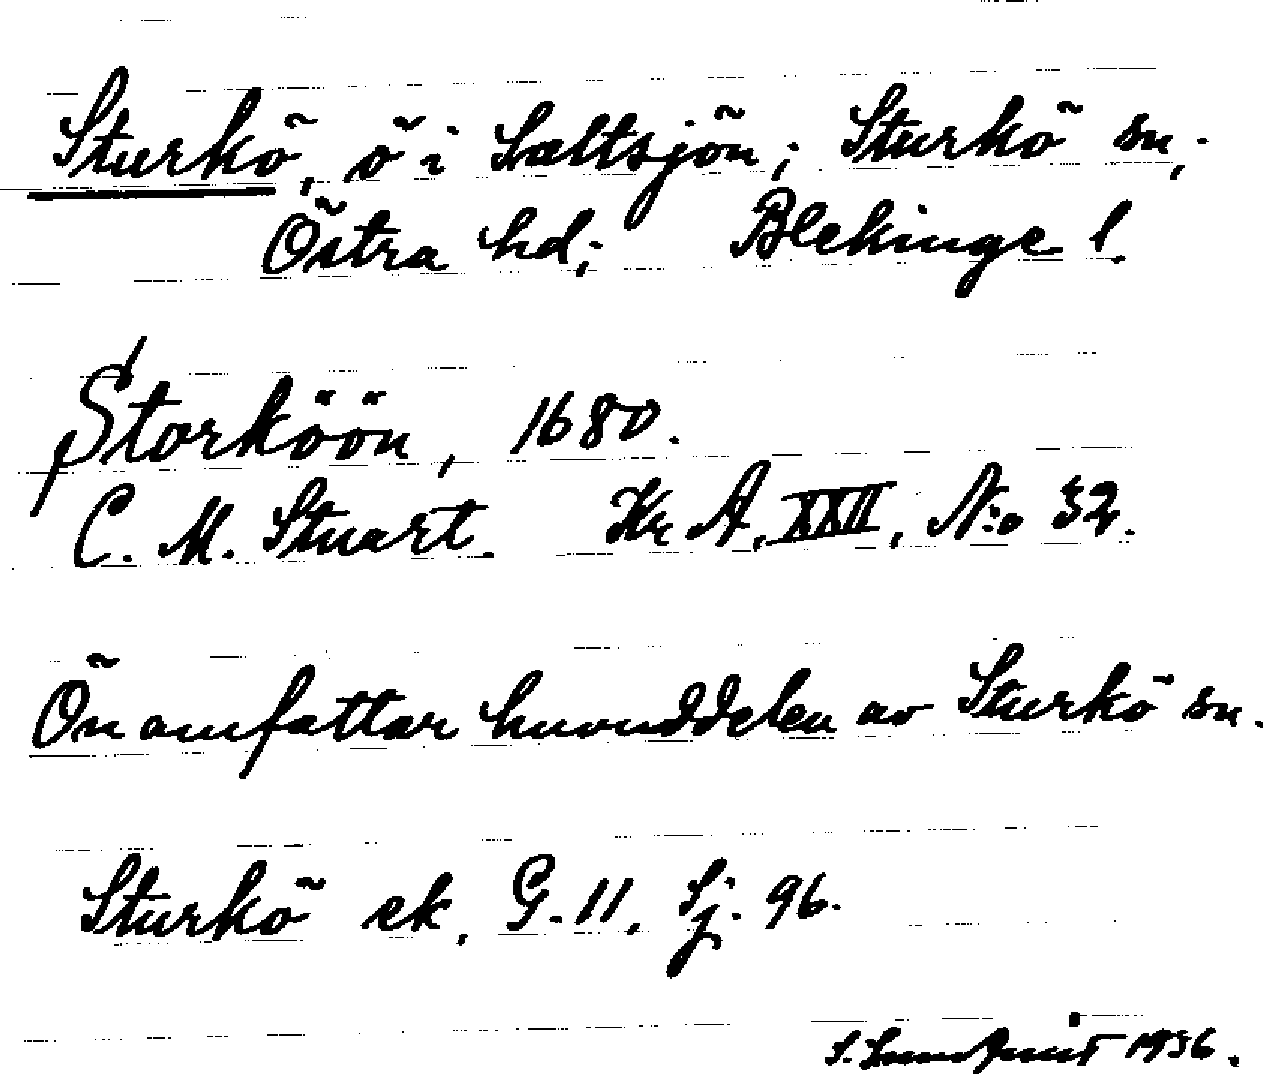 Sturkö, ö i Saltsjön; Sturkö sn,
Östra hd; Blekinge l.
Storköön, 1680.
C. M. Stuart. Kr A, XXII, N:o 32.
Ön omfattar huvuddelen av Sturkö sn.
Sturkö ek. G. 11, Sj. 96.
S. 1936.